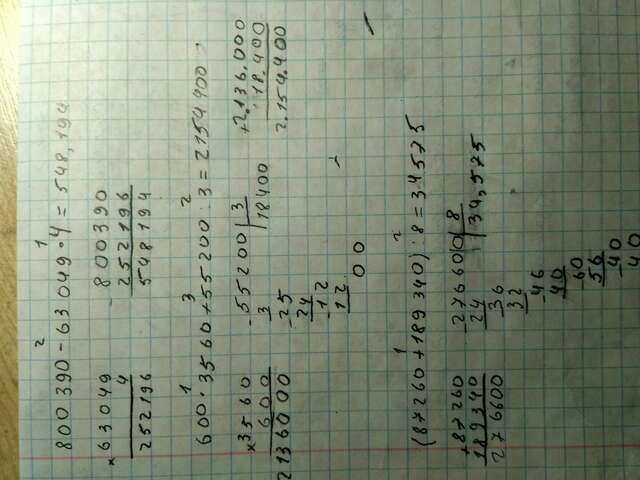 800390-63049·4=548,194
2 1
×63049
4
252196
-800390
252196
548194
600·3560+55200:3=2154900
1 3 2
×3560
600
2136000
-55200|3
3 |18400
-25
24
-12
12
00
+2.136.000
18.400
2.154.400
(87260+189340):8=34575
1 2
+87260
189340
276600
-276600|8
24 |34,575
-36
32
-46
40
-60
56
-40
40